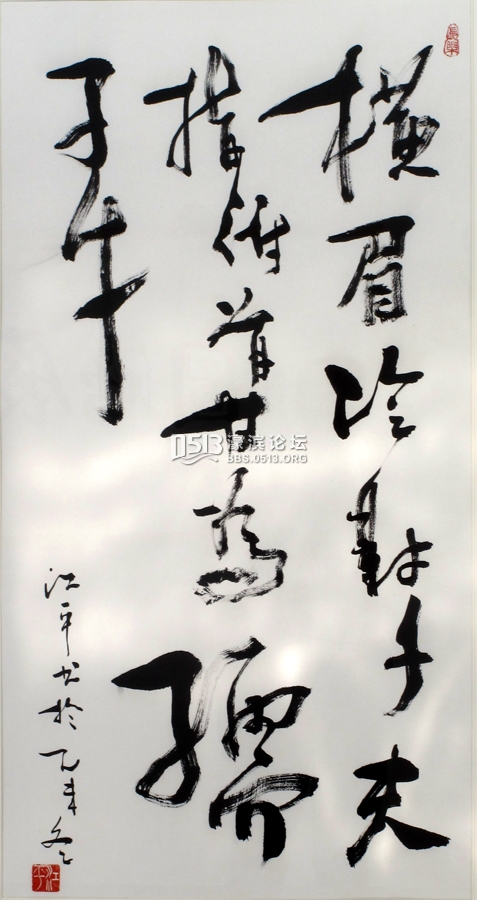 橫眉冷對千夫
指俯首甘為孺
子牛
江平书於乙未冬
江平
0513濠滨论坛
BBS.0513.ORG